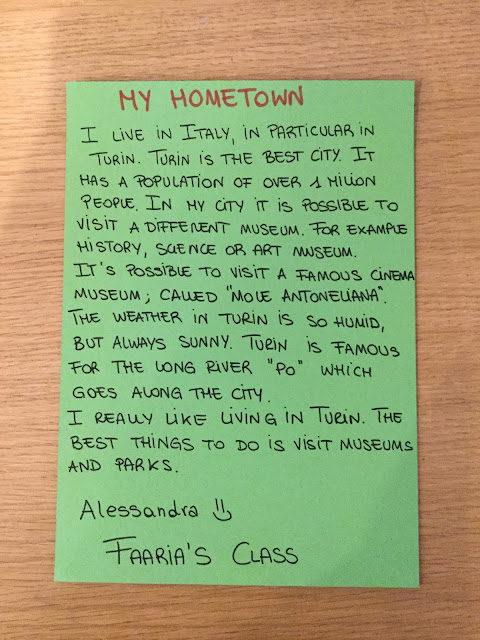 MY HOMETOWN
I LIVE IN ITALY, IN PARTICULAR IN
TURIN. TURIN IS THE BEST CITY. IT
HAS A POPULATION OF OVER 1 MILION
PEOPLE. IN MY CITY IT IS POSSIBLE TO
VISIT A DIFFERENT MUSEUM. FOR EXAMPLE
HISTORY, SCIENCE OR ART MUSEUM.
IT'S POSSIBLE TO VISIT A FAMOUS CINEMA
MUSEUM; CALLED "MOLE ANTONELIANA".
THE WEATHER IN TURIN IS SO HUMID,
BUT ALWAYS SUNNY. TURIN IS FAMOUS
FOR THE LONG RIVER "PO" WHICH
GOES ALONG THE CITY.
I REALLY LIKE LIVING IN TURIN. THE
BEST THINGS TO DO IS VISIT MUSEUMS
AND PARKS.
Alessandra
FAARIA'S CLASS